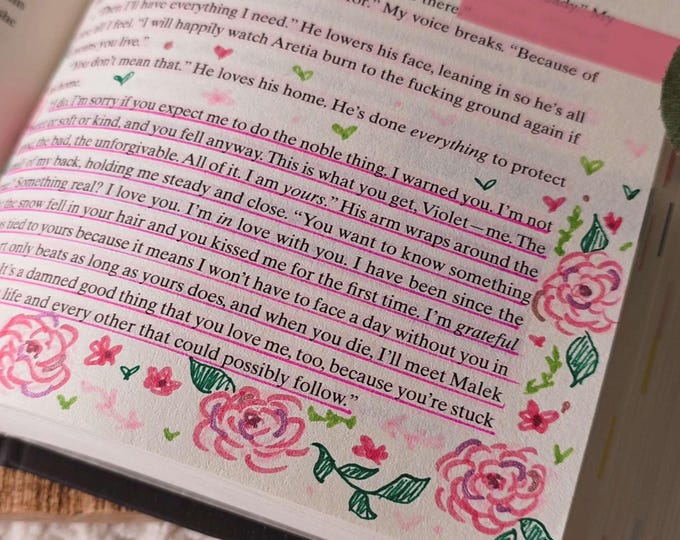 there."
"Then I'll have everything I need." He lowers his face, leaning in so he's all
I feel. "I will happily watch Aretia burn to the fucking ground again if
means you live."
"You don't mean that." He loves his home. He's done everything to protect
home.
"I do. I'm sorry if you expect me to do the noble thing. I warned you. I'm not
or soft or kind, and you fell anyway. This is what you get, Violet—me. The
the bad, the unforgivable. All of it. I am yours." His arm wraps around the
of my back, holding me steady and close. "You want to know something
"Something real? I love you. I'm in love with you. I have been since the
the snow fell in your hair and you kissed me for the first time. I'm grateful
tied to yours because it means I won't have to face a day without you in
only beats as long as yours does, and when you die, I'll meet Malek
It's a damned good thing that you love me, too, because you're stuck
life and every other that could possibly follow."
My voice breaks. "Because of
My
she